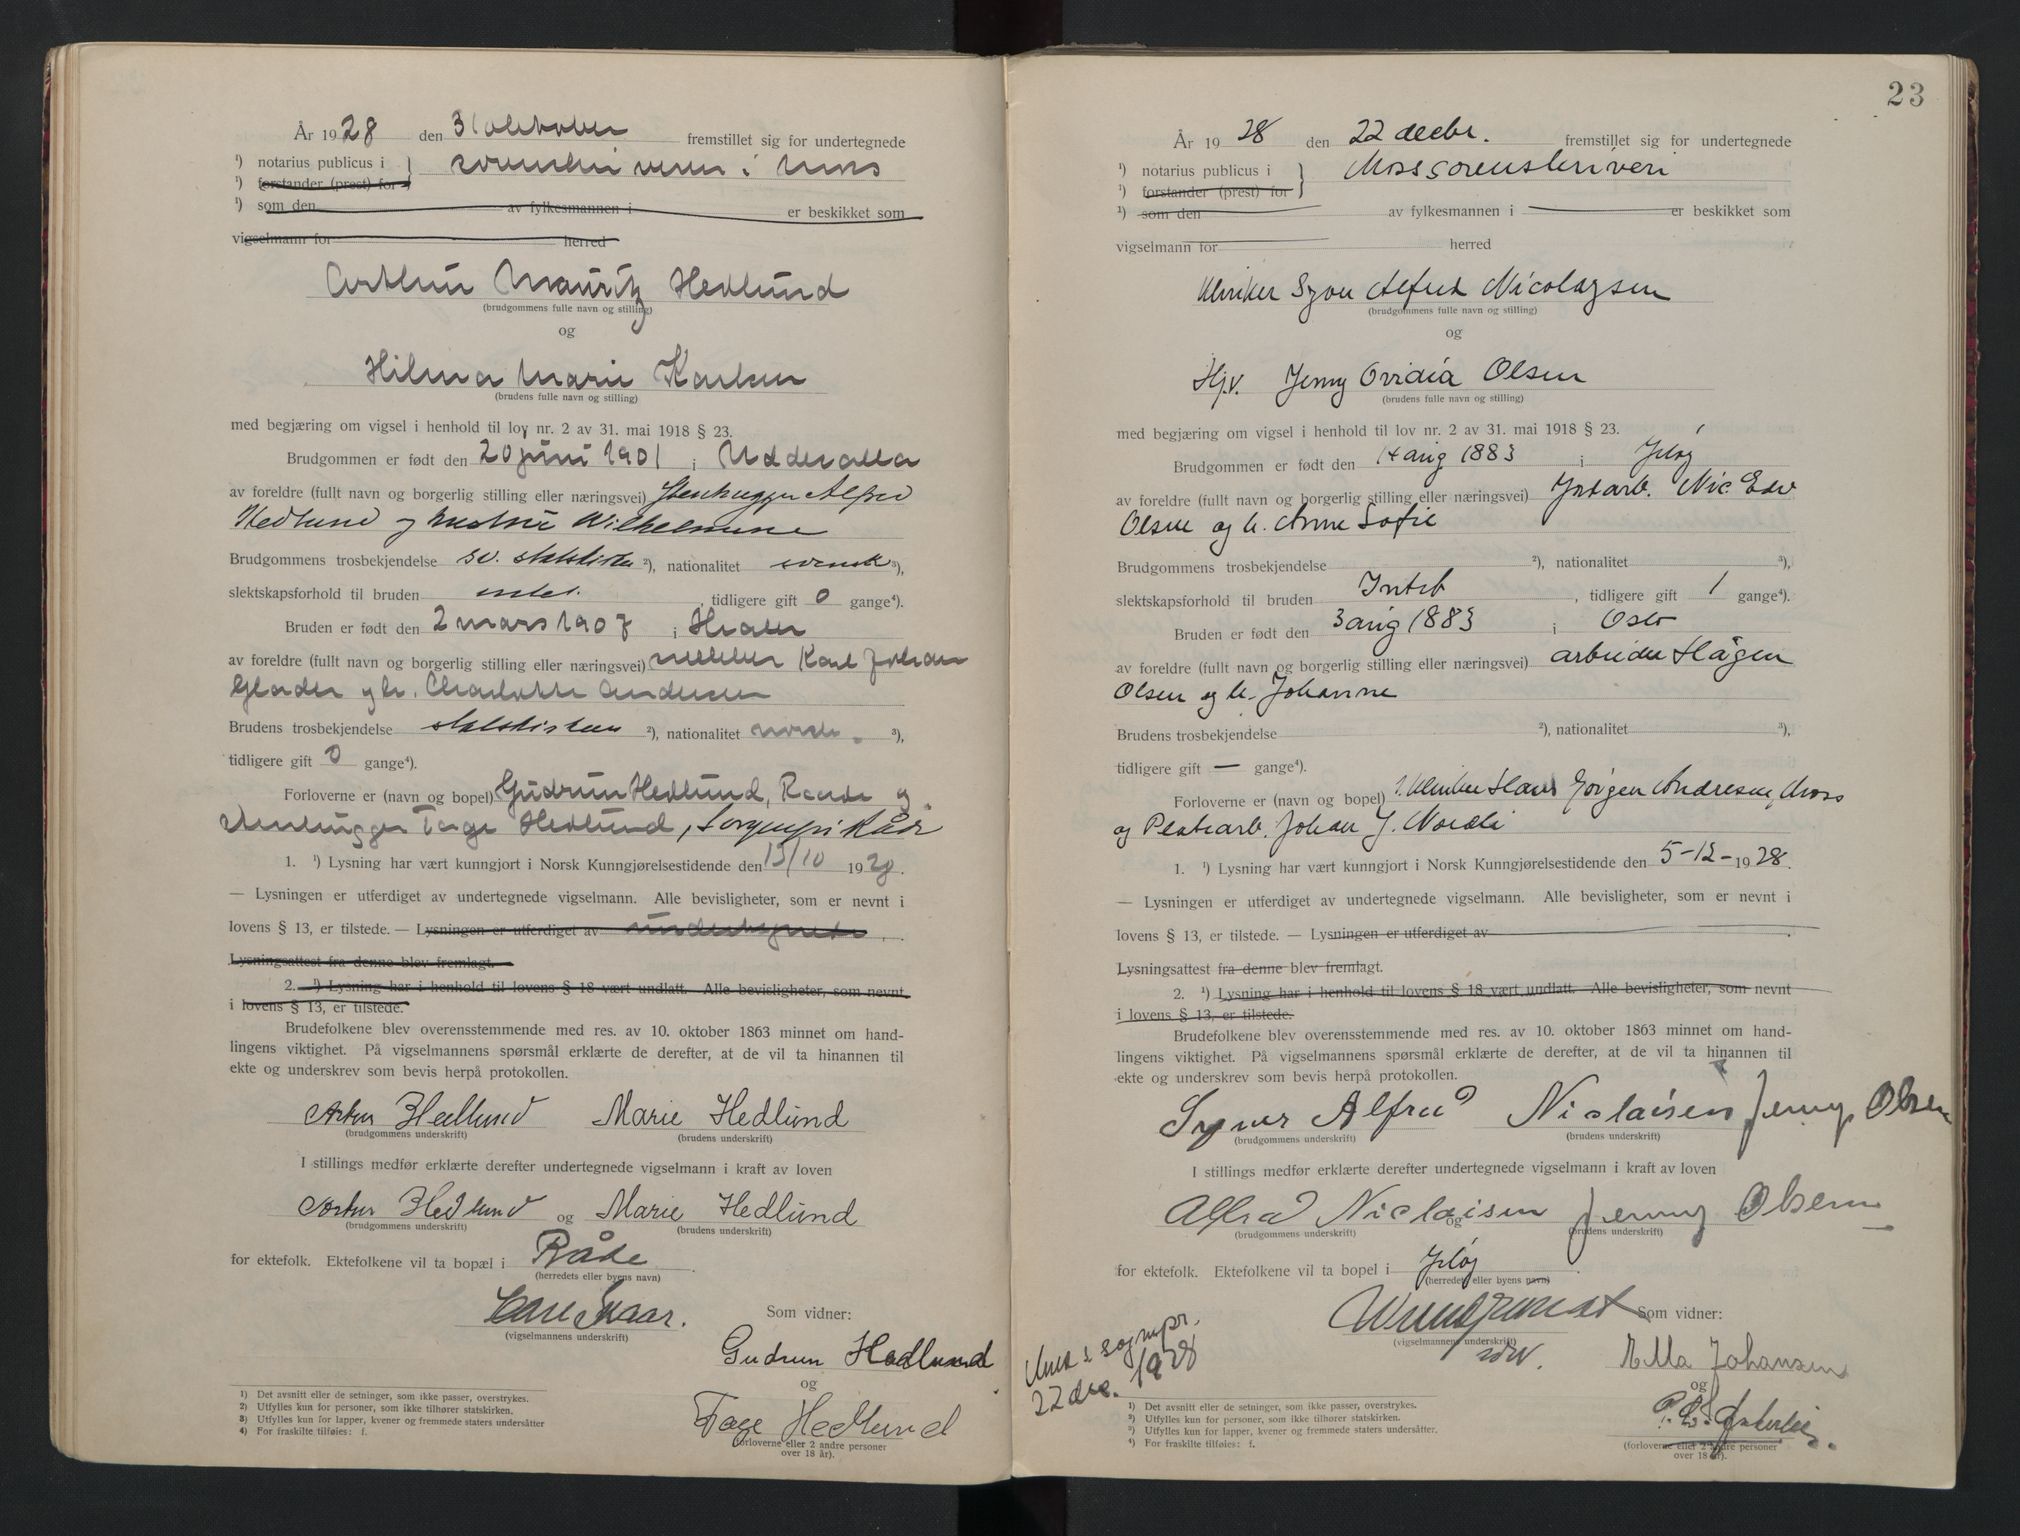 År 1928 den 31 oktober fremstillet sig for undertegnede
¹) notarius publicus i } sorenskriveren i Moss
¹) forstander (prest) for
¹) som den av fylkesmannen i er beskikket som
vigselmann for herred
Arthur Mauritz Hedlund
(brudgommens fulle navn og stilling)
og
Hilma Marie Karlsen
(brudens fulle navn og stilling)
med begjæring om vigsel i henhold til lov nr. 2 av 31. mai 1918 § 23.
Brudgommen er født den 20 juni 1901 i Uddevalla
av foreldre (fullt navn og borgerlig stilling eller næringsvei) Stenhugger Alfred
Hedlund og hustru Wilhelmine
Brudgommens trosbekjendelse sv. statskirke ²), nationalitet svensk ³),
slektskapsforhold til bruden intet , tidligere gift 0 gange⁴).
Bruden er født den 2 mars 1907 i Hvaler
av foreldre (fullt navn og borgerlig stilling eller næringsvei) Karl Johan
og h. Charlotte Andersen
Brudens trosbekjendelse statskirken ²), nationalitet norsk ³),
tidligere gift 0 gange⁴).
Forloverne er (navn og bopel) Gudrun Hedlund, Raade og
stenhugger Tage Hedlund, Råde
1. ¹) Lysning har vært kunngjort i Norsk Kunngjørelsestidende den 13/10 1928.
— Lysningen er utferdiget av undertegnede vigselmann. Alle bevisligheter, som er nevnt i
lovens § 13, er tilstede. — Lysningen er utferdiget av undertegnede.
Lysningsattest fra denne blev fremlagt.
2. ¹) Lysning har i henhold til lovens § 18 vært undlatt. Alle bevisligheter, som nevnt
i lovens § 13, er tilstede.
Brudefolkene blev overensstemmende med res. av 10. oktober 1863 minnet om hand-
lingens viktighet. På vigselmannens spørsmål erklærte de derefter, at de vil ta hinannen til
ekte og underskrev som bevis herpå protokollen.
Artur Hedlund Marie Hedlund
(brudgommens underskrift) (brudens underskrift)
I stillings medfør erklærte derefter undertegnede vigselmann i kraft av loven
Artur Hedlund og Marie Hedlund
(brudgommens underskrift) (brudens underskrift)
for ektefolk. Ektefolkene vil ta bopæl i Råde
(herredets eller byens navn)
Carl Svaar. Som vidner:
(vigselmannens underskrift)
Gudrun Hedlund
og
Tage Hedlund
(forloverne eller 2 andre personer
over 18 år).
¹) Det avsnitt eller de setninger, som ikke passer, overstrykes.
²) Utfylles kun for personer, som ikke tilhører statskirken.
³) Utfylles kun for lapper, kvener og fremmede staters undersåtter
⁴) For fraskilte tilføies: f.
23
År 1928 den 22 decbr. fremstillet sig for undertegnede
¹) notarius publicus i } Moss sorenskriveri
¹) forstander (prest) for
¹) som den av fylkesmannen i er beskikket som
vigselmann for herred
Alfred Nicolaysen
(brudgommens fulle navn og stilling)
og
Hjv. Jenny Ovidia Olsen
(brudens fulle navn og stilling)
med begjæring om vigsel i henhold til lov nr. 2 av 31. mai 1918 § 23.
Brudgommen er født den 14 aug 1883 i Jeløy
av foreldre (fullt navn og borgerlig stilling eller næringsvei) Nic. Edv
Olsen og h. Anne Sofie
Brudgommens trosbekjendelse ²), nationalitet ³),
slektskapsforhold til bruden Intet , tidligere gift 1 gange⁴).
Bruden er født den 3 aug 1883 i Oslo
av foreldre (fullt navn og borgerlig stilling eller næringsvei) arbeider Hågen
Olsen og h. Johanne
Brudens trosbekjendelse ²), nationalitet ³),
tidligere gift — gange⁴).
Forloverne er (navn og bopel) Hans Jørgen Andresen, Moss
og Johan J. Nordli
1. ¹) Lysning har vært kunngjort i Norsk Kunngjørelsestidende den 5-12-1928.
— Lysningen er utferdiget av undertegnede vigselmann. Alle bevisligheter, som er nevnt i
lovens § 13, er tilstede. — Lysningen er utferdiget av .
Lysningsattest fra denne blev fremlagt.
2. ¹) Lysning har i henhold til lovens § 18 vært undlatt. Alle bevisligheter, som nevnt
i lovens § 13, er tilstede.
Brudefolkene blev overensstemmende med res. av 10. oktober 1863 minnet om hand-
lingens viktighet. På vigselmannens spørsmål erklærte de derefter, at de vil ta hinannen til
ekte og underskrev som bevis herpå protokollen.
Alfred Niclaisen Jenny Olsen
(brudgommens underskrift) (brudens underskrift)
I stillings medfør erklærte derefter undertegnede vigselmann i kraft av loven
Alfred Niclaisen og Jenny Olsen
(brudgommens underskrift) (brudens underskrift)
for ektefolk. Ektefolkene vil ta bopel i Jeløy .
(herredets eller byens navn)
Som vidner:
(vigselmannens underskrift)
Ella Johansen
og
(forloverne eller 2 andre personer
over 18 år).
sognpr.
22 dec. 1928
¹) Det avsnitt eller de setninger, som ikke passer, overstrykes.
²) Utfylles kun for personer, som ikke tilhører statskirken.
³) Utfylles kun for lapper, kvener og fremmede staters undersåtter.
⁴) For fraskilte tilføies: f.